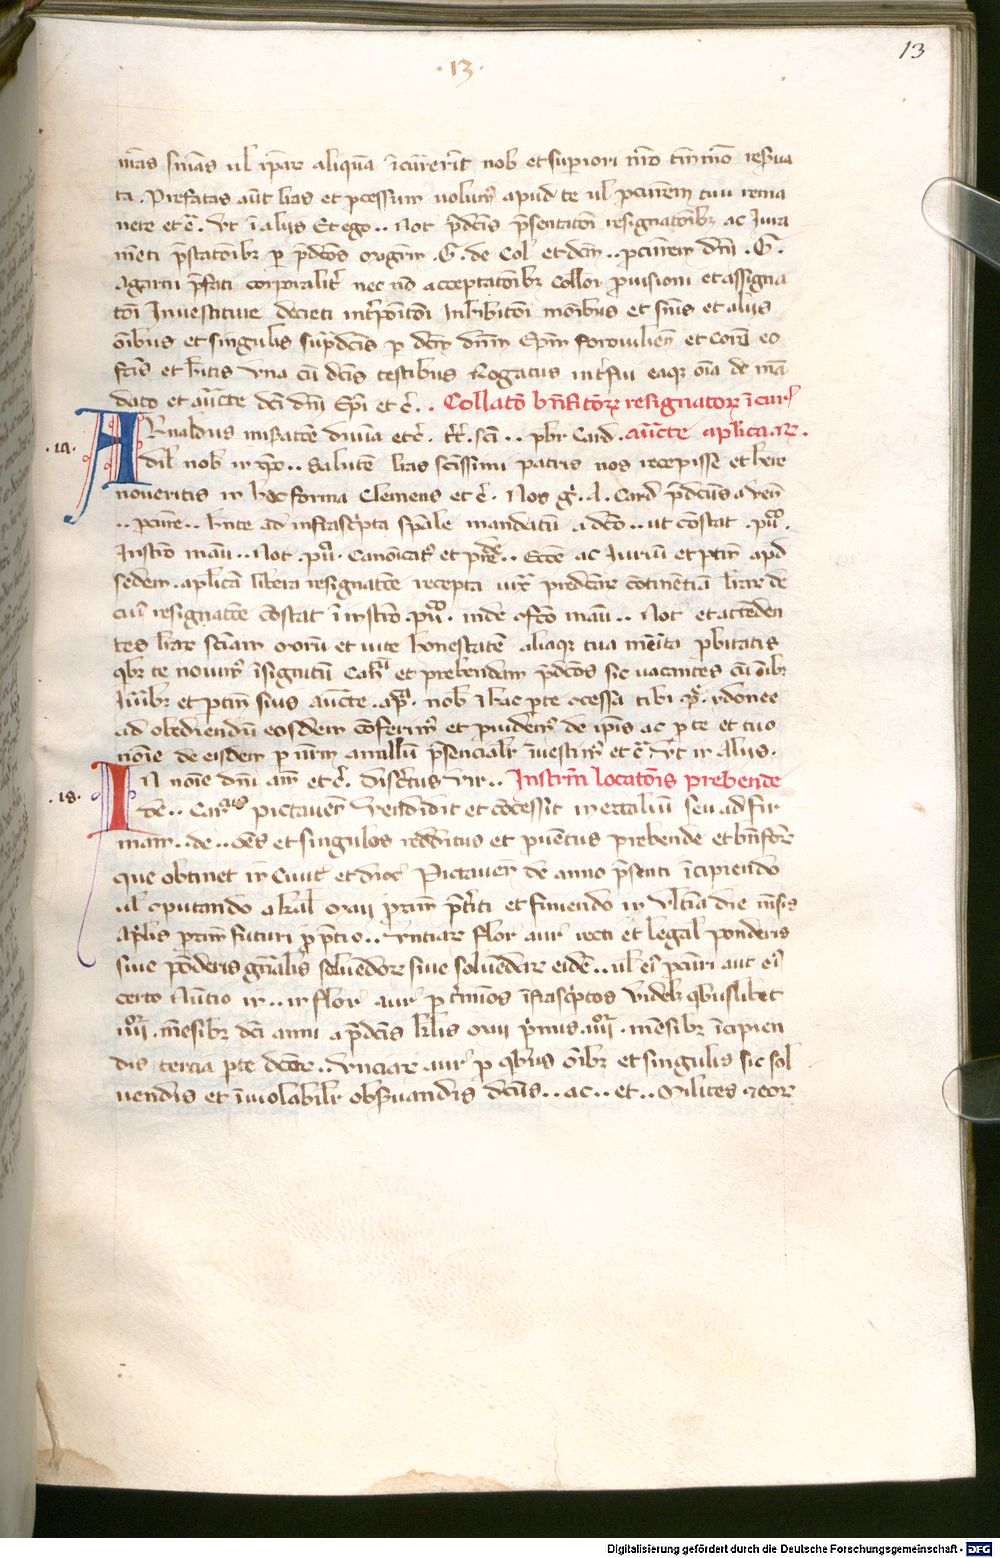 13
·13·
mãs sniãs ul ip̃ar aliquã ĩcurrerĩt nob et superiori nr̃o tm̃mõ res̃ua
ta . Prefatas aũt lr̃as et p̃cessum uolum᷒ apud te ul p̃cur̃em tuu rema
nere et c̃. Vt ĩ alijs Et ego .. Not p̃dc̃is p̃sentatõi resignatõibꝫ ac Iura
mẽti p̃statõibꝫ p p̃dc̃os mgr̃m .G. de Col et dcm̃ .. p̃curem dñi .G.
Agarni p̃fati corporalit᷑ nec nõ acceptatõibꝫ Collõi p̃uisioni et assigna
tõi Inuestiture decreti int᷑põitõi Inhibitõi mõibus et snĩis et alijs
õibus et singulis sup̃dc̃is p dcm̃ dñm Ep̃m foroiulien̄ et corã eo
fc̃is et h̃itis vna cũ dc̃is testibus Rogatus int᷑fui eaqꝫ oĩa de mã
dato et auct̃te dc̃i dñi Ep̃i et c̃. . Collatõ bñfic̃ioꝝ resignatoꝝ ĩ cur᷑
·17· ARnaldus mis̃atõe diuĩa et c̃. tt̃. sc̃i .. pbr Card . auct̃te aplica .
dil nob in xp̃o .. Salutẽ lr̃as sc̃issimi patris nos recepisse et h̃ere
noueritis in hec forma Clemens et c̃. Nos g᷑. A. Card p̃dc̃us a uen̄
.. p̃cur̃e .. h̃nte ad infrasc̃pta sp̃ale mandatũ a dc̃o .. ut cõstat .pu᷒.
Instr̃o manu .. Not .pu. Canonicat᷒ et p̃nde .. Ecc̃e ac Iuriũ et p̃tiñ apd̃
sedem . aplicã libera resignatõe recepta iux᷑ predcãe cõtinẽtiã lr̃ar de
cui᷒ resignatõe cõstat ĩ instr̃o .pu᷒. inde cf̃co manu .. Not et attẽden
tes lr̃ar sciam morũ et uite honestatẽ aliaqꝫ tua mẽita p̃bitatis
qbꝫ te nouim᷒ ĩsignitũ Cañ et prebendam p̃dc̃os sic vacantes cũ õibꝫ
Iuribꝫ et p̃tiñ suis auct̃te . ap̃. nob ĩ hac p̃te c̃cessa tibi ydonee
ad obediendũ eosdem cõferim᷒ et p̃uidem᷒ de ip̃is ac p te et tuo
noĩe de eisdem p nr̃m anullũ p̃sencialit᷑ ĩuestim᷒ et c̃ Vt in Alijs .
·18· IN noĩe dñi am̃ et c̃. Disc̃tus vir .. Instrm̃ locatõis prebende
de .. Can᷒ pictauen̄ vendidit et cõcessit in extaliũ seu ad fir
mam .. de .. oẽs et singulos redditus et p̃uẽtus prebende et bñfic̃
que obtinet in Ciuit᷑ et dioc᷑ Pictauen̄ de anno p̃senti ĩcipiendo
ul c̃putando a kal maij p̃xim p̃t᷑iti et finiendo in vltĩa die mẽsis
Ap̃lis p̃xim futuri p p̃tio .. vnciar flor aur᷑ recti et legal ponderis
siue põderis gñalis soluẽdor siue soluẽdar eidẽ .. ul ei᷒ p̃curi aut ei᷒
certo Nũtio in .. in flor aur᷑ p t᷑mĩos ĩfrasc̃ptos videlꝫ qbuslibet
iiijor. mẽsibꝫ dc̃i anni a p̃dc̃is klis maij p̃imis .iiijor. mẽsibꝫ ĩcipien
dis tercia p̃te dc̃ar .. vnciar aur᷑ p qbus õibꝫ et singulis sic sol
uendis et ĩuiolabilr obs̃uandis dc̃us .. ac .. et .. Milites
Digitalisierung gefördert durch die Deutsche Forschungsgemeinschaft · DFG